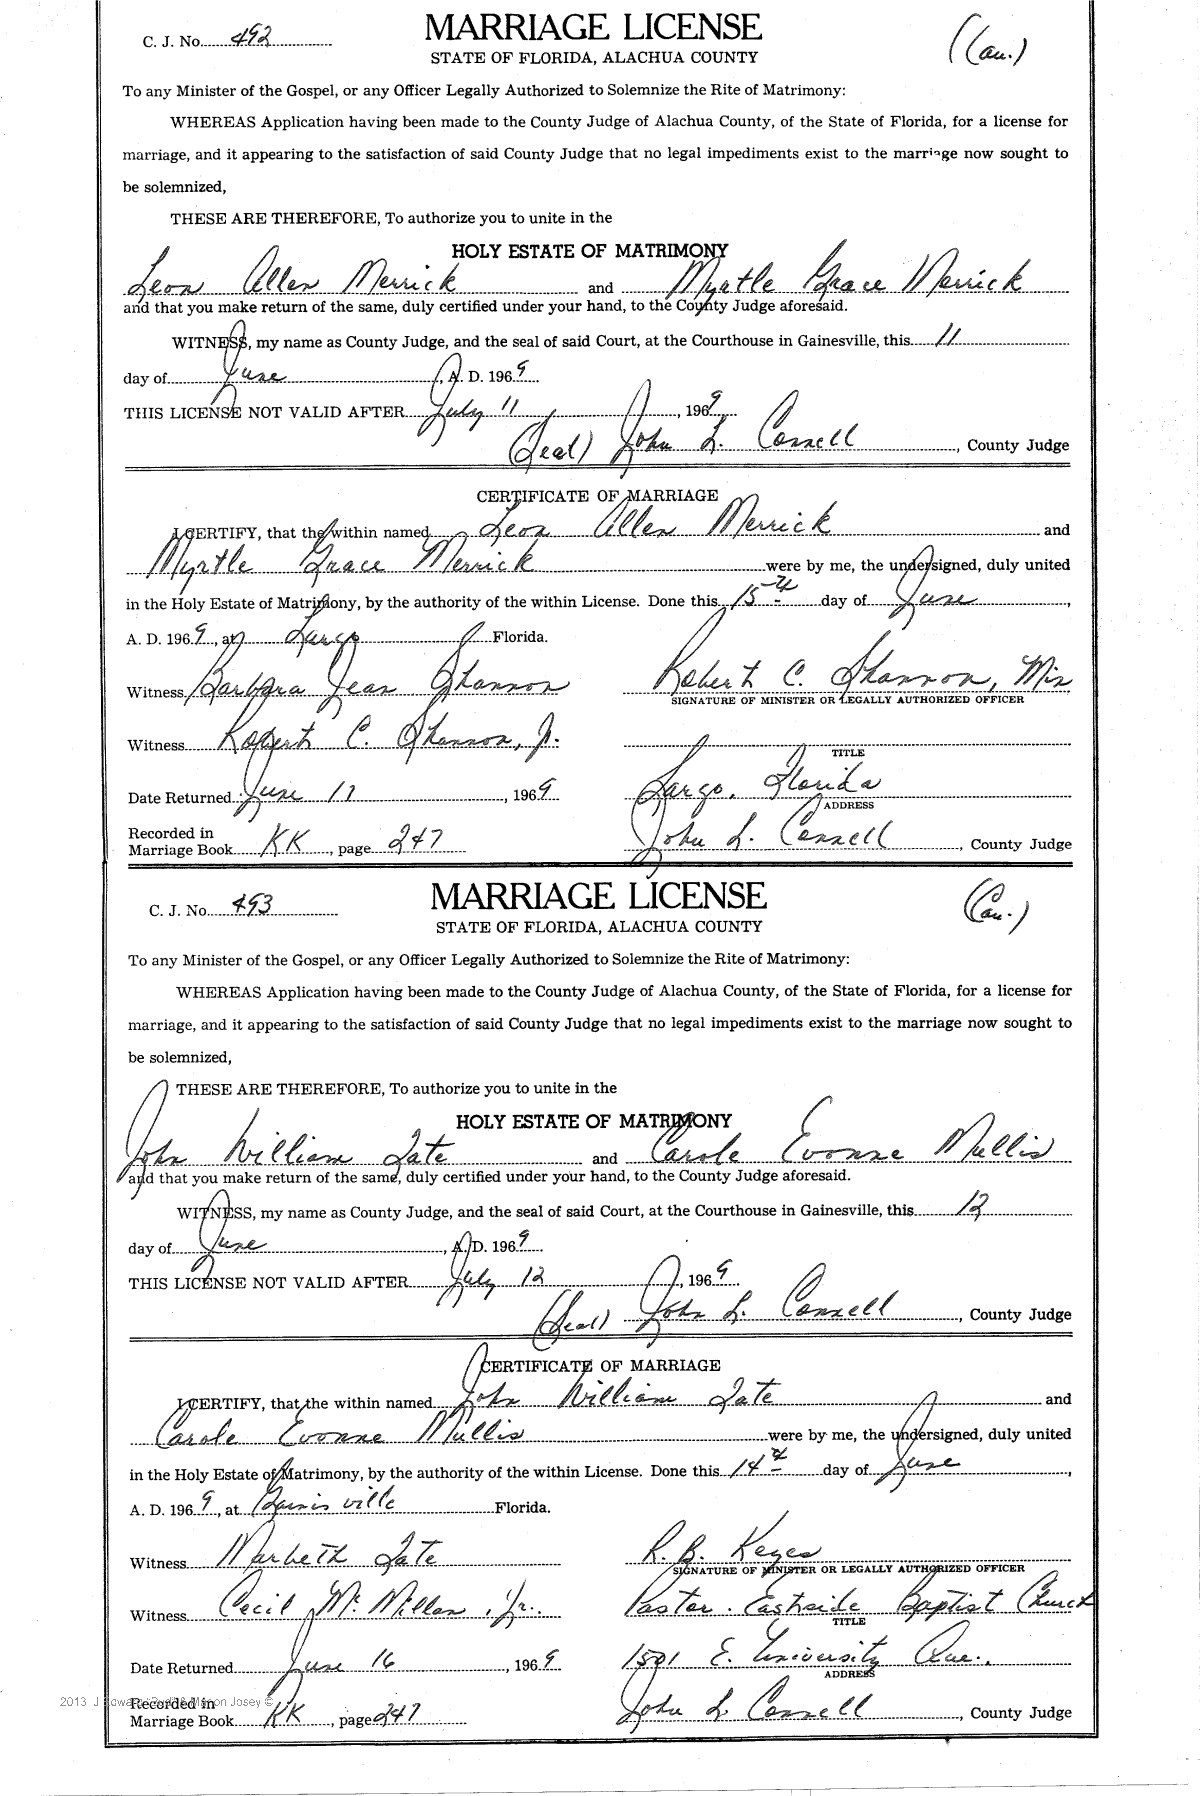 C. J. No. 492
MARRIAGE LICENSE
(Cau.)
STATE OF FLORIDA, ALACHUA COUNTY
To any Minister of the Gospel, or any Officer Legally Authorized to Solemnize the Rite of Matrimony:
WHEREAS Application having been made to the County Judge of Alachua County, of the State of Florida, for a license for
marriage, and it appearing to the satisfaction of said County Judge that no legal impediments exist to the marriage now sought to
be solemnized,
THESE ARE THEREFORE, To authorize you to unite in the
HOLY ESTATE OF MATRIMONY
Leon Allen Merrick and Myrtle Grace Merrick
and that you make return of the same, duly certified under your hand, to the County Judge aforesaid.
WITNESS, my name as County Judge, and the seal of said Court, at the Courthouse in Gainesville, this 11
day of June, A. D. 1969
THIS LICENSE NOT VALID AFTER July 11, 1969
(Seal) John L. Connell, County Judge
CERTIFICATE OF MARRIAGE
I CERTIFY, that the within named Leon Allen Merrick and
Myrtle Grace Merrick were by me, the undersigned, duly united
in the Holy Estate of Matrimony, by the authority of the within License. Done this 15th day of June,
A. D. 1969, at Largo Florida.
Witness Barbara Jean Shannon Robert C. Shannon, Min
SIGNATURE OF MINISTER OR LEGALLY AUTHORIZED OFFICER
Witness Robert C. Shannon, Jr.
TITLE
Date Returned June 17, 1969 Largo, Florida
ADDRESS
Recorded in
Marriage Book KK, page 247 John L. Connell, County Judge
C. J. No. 493
MARRIAGE LICENSE
(Cau.)
STATE OF FLORIDA, ALACHUA COUNTY
To any Minister of the Gospel, or any Officer Legally Authorized to Solemnize the Rite of Matrimony:
WHEREAS Application having been made to the County Judge of Alachua County, of the State of Florida, for a license for
marriage, and it appearing to the satisfaction of said County Judge that no legal impediments exist to the marriage now sought to
be solemnized,
THESE ARE THEREFORE, To authorize you to unite in the
HOLY ESTATE OF MATRIMONY
John William Tate and Carole Evonne Mullis
and that you make return of the same, duly certified under your hand, to the County Judge aforesaid.
WITNESS, my name as County Judge, and the seal of said Court, at the Courthouse in Gainesville, this 12
day of June, A. D. 1969
THIS LICENSE NOT VALID AFTER July 12, 1969
(Seal) John L. Connell, County Judge
CERTIFICATE OF MARRIAGE
I CERTIFY, that the within named John William Tate and
Carole Evonne Mullis were by me, the undersigned, duly united
in the Holy Estate of Matrimony, by the authority of the within License. Done this 14th day of June,
A. D. 1969, at Gainisville Florida.
Witness Marbeth Tate R. B. Keyes
SIGNATURE OF MINISTER OR LEGALLY AUTHORIZED OFFICER
Witness Cecil McMillan, Jr. Pastor. Eastside Baptist Church
TITLE
Date Returned June 16, 1969 1501 E. University Ave.
ADDRESS
Recorded in
Marriage Book KK, page 247 John L. Connell, County Judge
2013 J Edward Josey ©